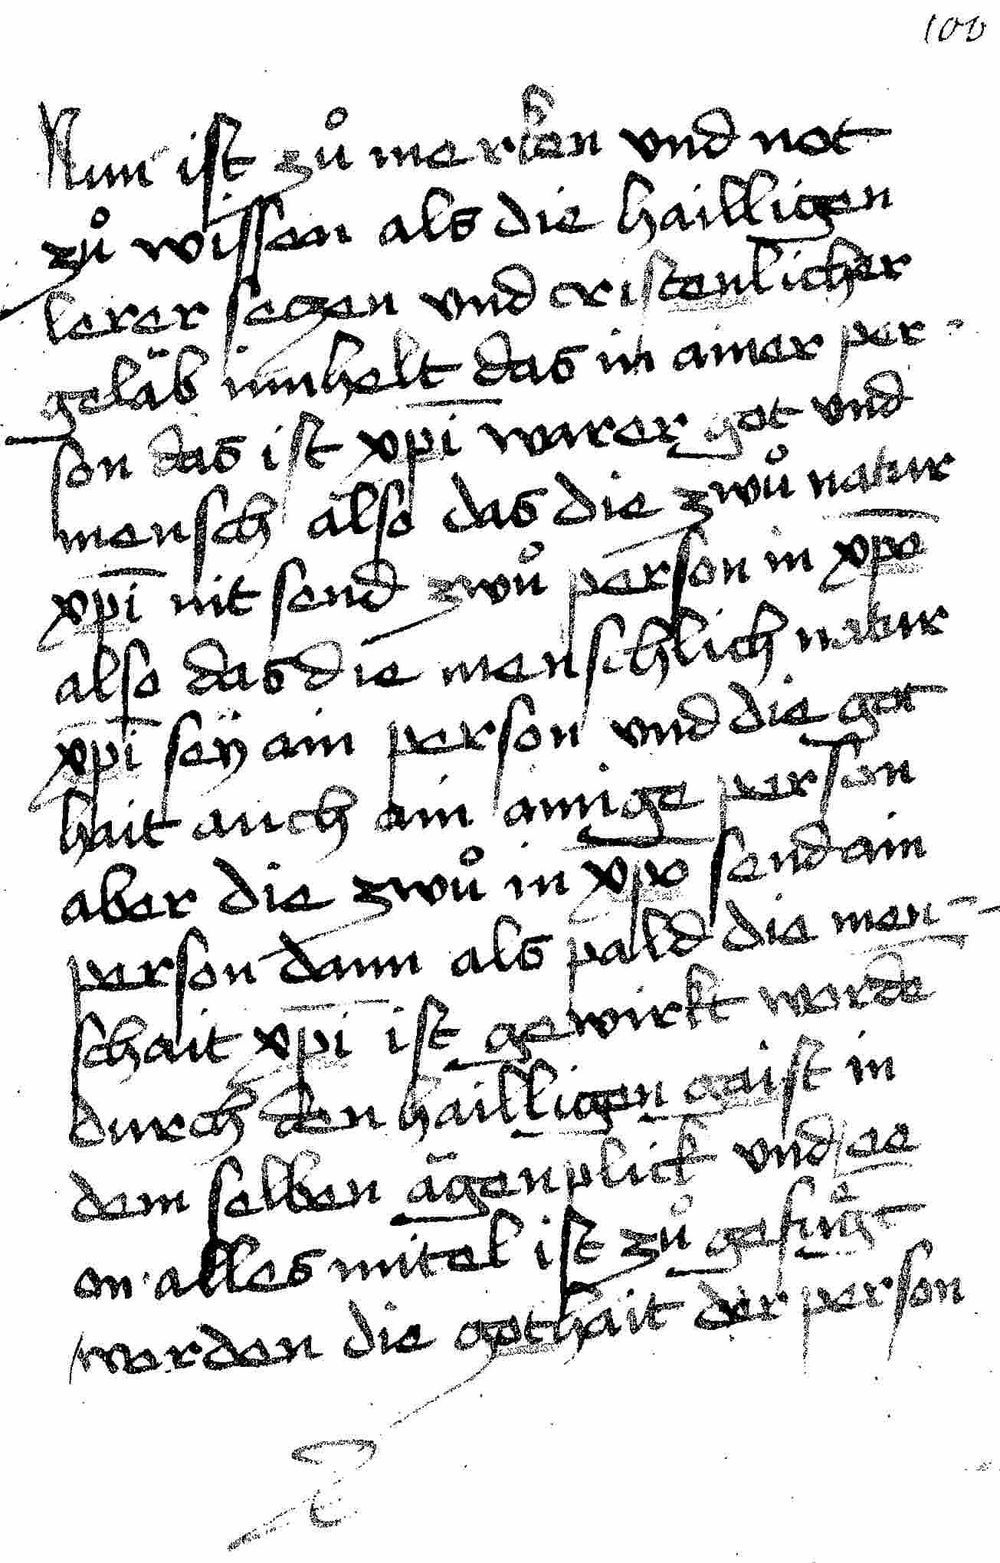 100
Nun ist zů merken vnd not
zů wissen als die hailligen
lerer seczen vnd cristenlicher
geläb innhelt das in ainer per-
son das ist xpi warer got vnd
mensch also das die zwů natur
xpi nit send zwů person in xpo
also das die menschlich natur
xpi seÿ ain person vnd die got
hait auch ain ainige person
aber die zwů in xpo send ain
person dann als pald die men-
schait xpi ist gewirkt worde
durch den hailligen gaist in
dem selben ägenplick vnd ee
on alles mitel ist zů gefůgt
worden die gothait der person